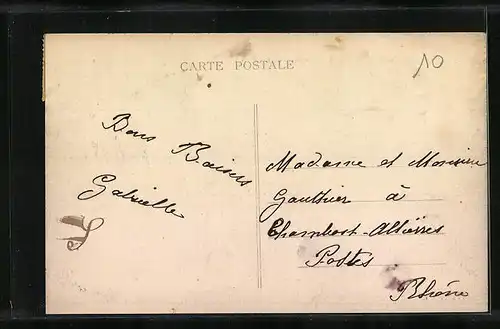 CARTE POSTALE
10
Bons Baisers
Gabrielle
Madame et Monsieur
Gauthier à
Chambost-Allières
Postes
Rhône